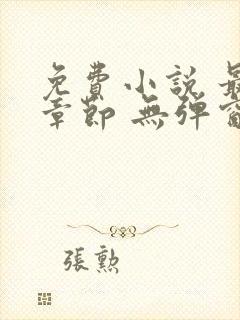 免費小說 最
章節 無彈窗
張勲